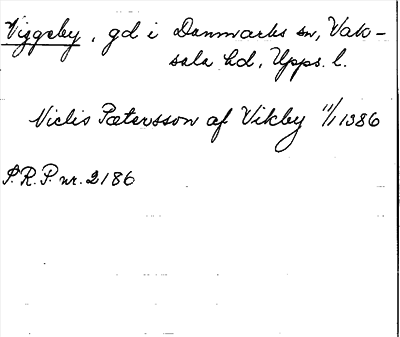 Viggeby, gd i Danmarks sn, Vak-
sala hd, Upps. l.
Niclis Pætersson af Vikby 11/1 1386
S.R.P. nr. 2186